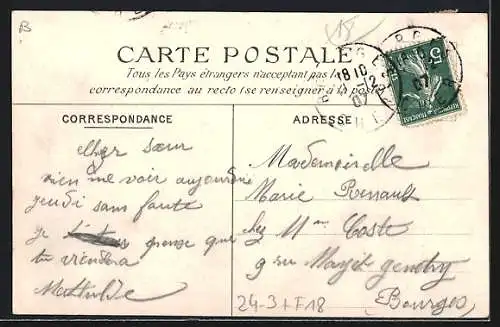 B
18
CARTE POSTALE
Tous les Pays étrangers n'acceptant pas la
correspondance au recto (se renseigner à la poste
CORRESPONDANCE
cher sœur
vien me voir aujourdui
jeudi sans faute
je pense que
tu viendra
Mathilde
ADRESSE
Mademoiselle
Marie Renault
chez Mme Coste
9 rue
Bourges
24-3+F18
18 10
12
07
5c